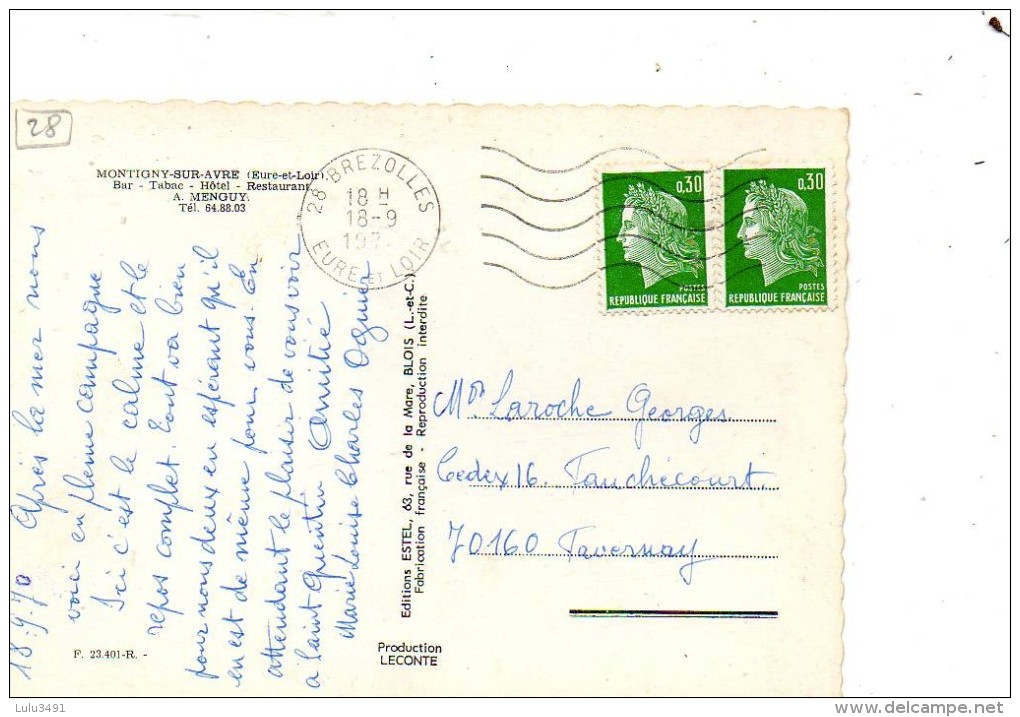 28
MONTIGNY-SUR-AVRE (Eure-et-Loir)
Bar - Tabac - Hôtel - Restaurant
A. MENGUY
Tél. 64.88.03
28 BREZOLLES
18 H
18-9
197
EURE et LOIR
0,30
POSTES
REPUBLIQUE FRANÇAISE
0,30
POSTES
REPUBLIQUE FRANÇAISE
18.9.70 Après la mer nous
voici en pleine campagne
Ici c'est le calme et le
repos complet. Tout va bien
pour nous deux en espérant qu'il
en est de même pour vous. En
attendant le plaisir de vous voir
à Saint Quentin Amitié
Marie Louise Charles
Editions ESTEL, 63, rue de la Mare, BLOIS (L.-et-C.)
Fabrication française - Reproduction interdite
Laroche Georges
Cedex 16 Fauchécourt
70160 Tavernay
F. 23.401-R. -
Production
LECONTE
Lulu3491
www.delcampe.net